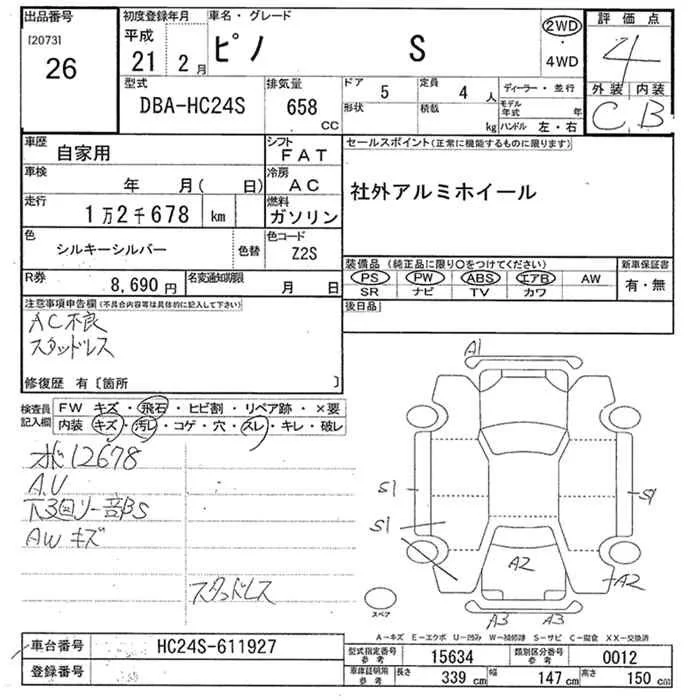 出品番号
[2073]
26
初度登録年月
平成
21 年 2 月
車名・グレード
ピノ S
2WD
・
4WD
評価点
4
外装 内装
C B
型式
DBA-HC24S
排気量
658 CC
ドア 5
形状
定員 4 人
積載 kg
ディーラー・並行
モデル年式 年
ハンドル 左・右
車歴
自家用
シフト
FAT
車検
年 月( 日)
冷房
AC
走行
1万2千678 km
燃料
ガソリン
色
シルキーシルバー
色替
色コード
Z2S
R券
8,690 円
名変通知期限
月 日
セールスポイント(正常に機能するものに限ります)
社外アルミホイール
装備品 (純正品に限り○をつけてください)
PS PW ABS エアB AW
SR ナビ TV カワ
新車保証書
有・無
後日品
注意事項申告欄(不具合内容等は具体的に記入して下さい)
AC不良
スタッドレス
修復歴 有〔箇所 〕
検査員
記入欄
FW キズ・飛石・ヒビ割・リペア跡・×要
内装・キズ・汚レ・コゲ・穴・スレ・キレ・破レ
12678
A.U
BS
AW キズ
スタッドレス
A1
S1
S1
S1
A2
A2
A3 A3
スペア
A－キズ E－エクボ U－凹み W－補修跡 S－サビ C－腐食 XX－交換済
車台番号
HC24S-611927
登録番号
型式指定番号
参考
15634
類別区分番号
参考
0012
車庫証明用
参考
長さ 339 cm
幅 147 cm
高さ 150 cm